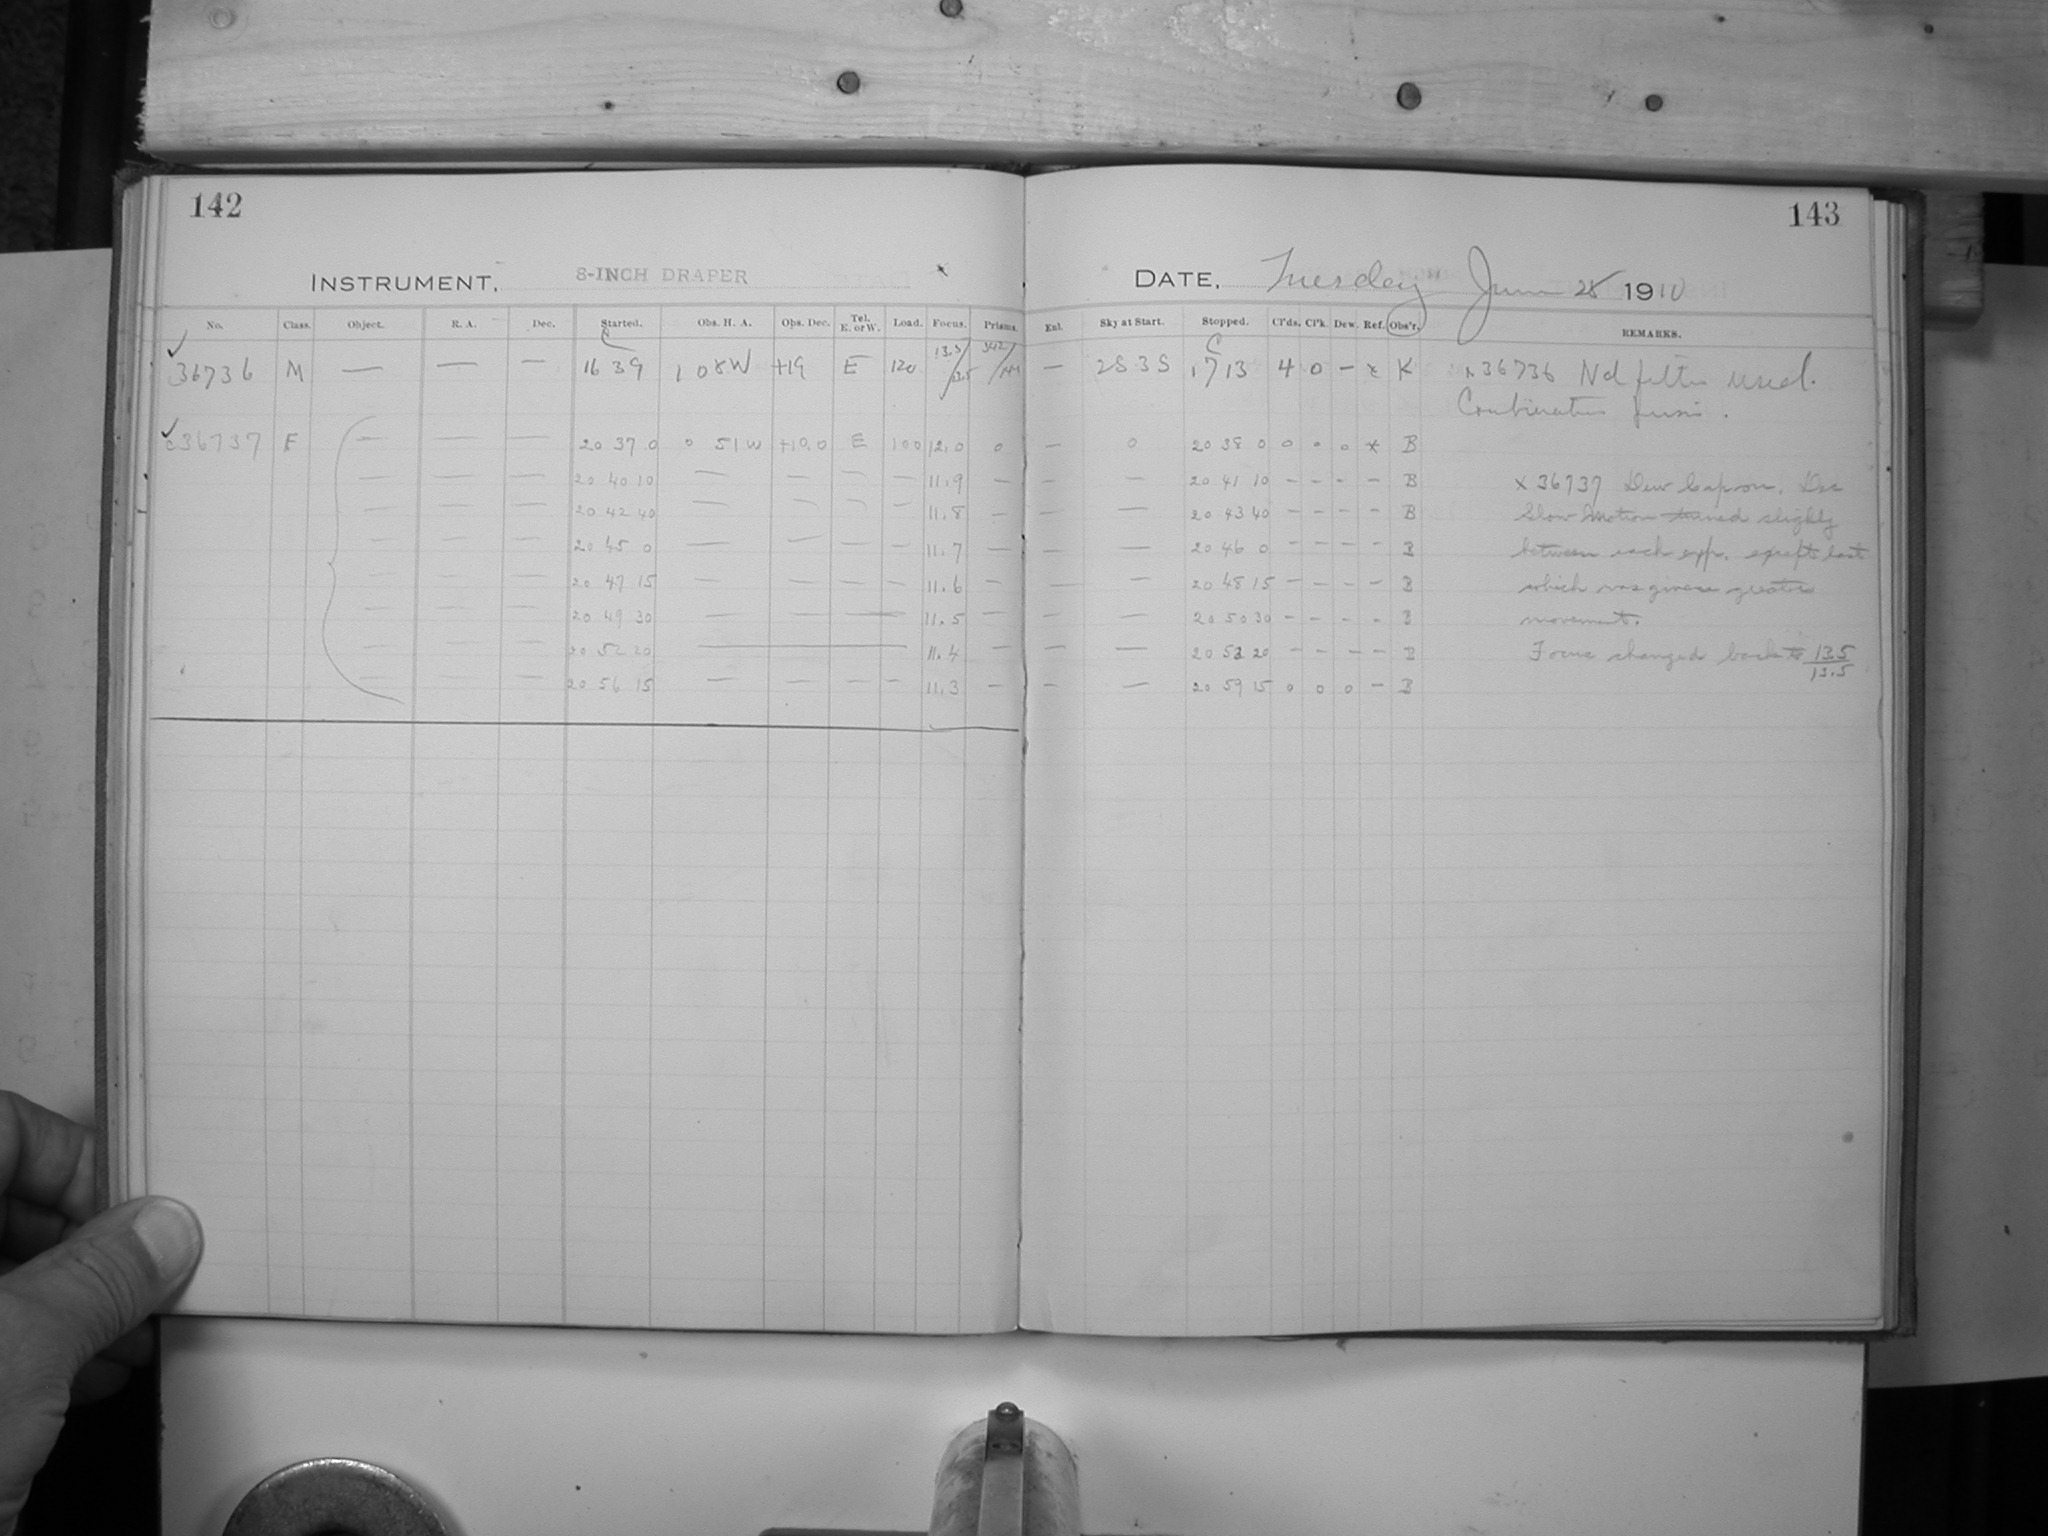 142
143
INSTRUMENT, 8-INCH DRAPER
DATE, Tuesday June 28 1910
No. Class. Object. R. A. Dec. Started. Obs. H. A. Obs. Dec. Tel. E. or W. Load. Focus. Prisms. Enl. Sky at Start. Stopped. Cl'ds. Cl'k. Dew. Ref. Obs'r. REMARKS.
36736 M — — — 16 39 1 08W +19 E 120 13.5/13.5 — 2S 3S 17 13 4 0 — x K x36736 Nd filter used.
Combination
c36737 F — — — 20 37 0 0 51W +10.0 E 100 12.0 0 — 0 20 38 0 0 0 0 * B
— — — 20 40 10 — — — — 11.9 — — — 20 41 10 - - - - B x 36737 Dew Cap on. Dec
— — — 20 42 40 — — — — 11.8 — — — 20 43 40 - - - - B Slow Motion turned slighly
— — — 20 45 0 — — — — 11.7 — — — 20 46 0 - - - - B between each exp. except last
— — — 20 47 15 — — — — 11.6 — — — 20 48 15 - - - - B which was given greater
— — — 20 49 30 — — — — 11.5 — — — 20 50 30 - - - - B movement.
— — 20 52 20 — 11.4 — — — 20 53 20 - - - - B Focus changed back to 13.5/13.5
— — — 20 56 15 — — — — 11.3 — — — 20 59 15 0 0 0 - B